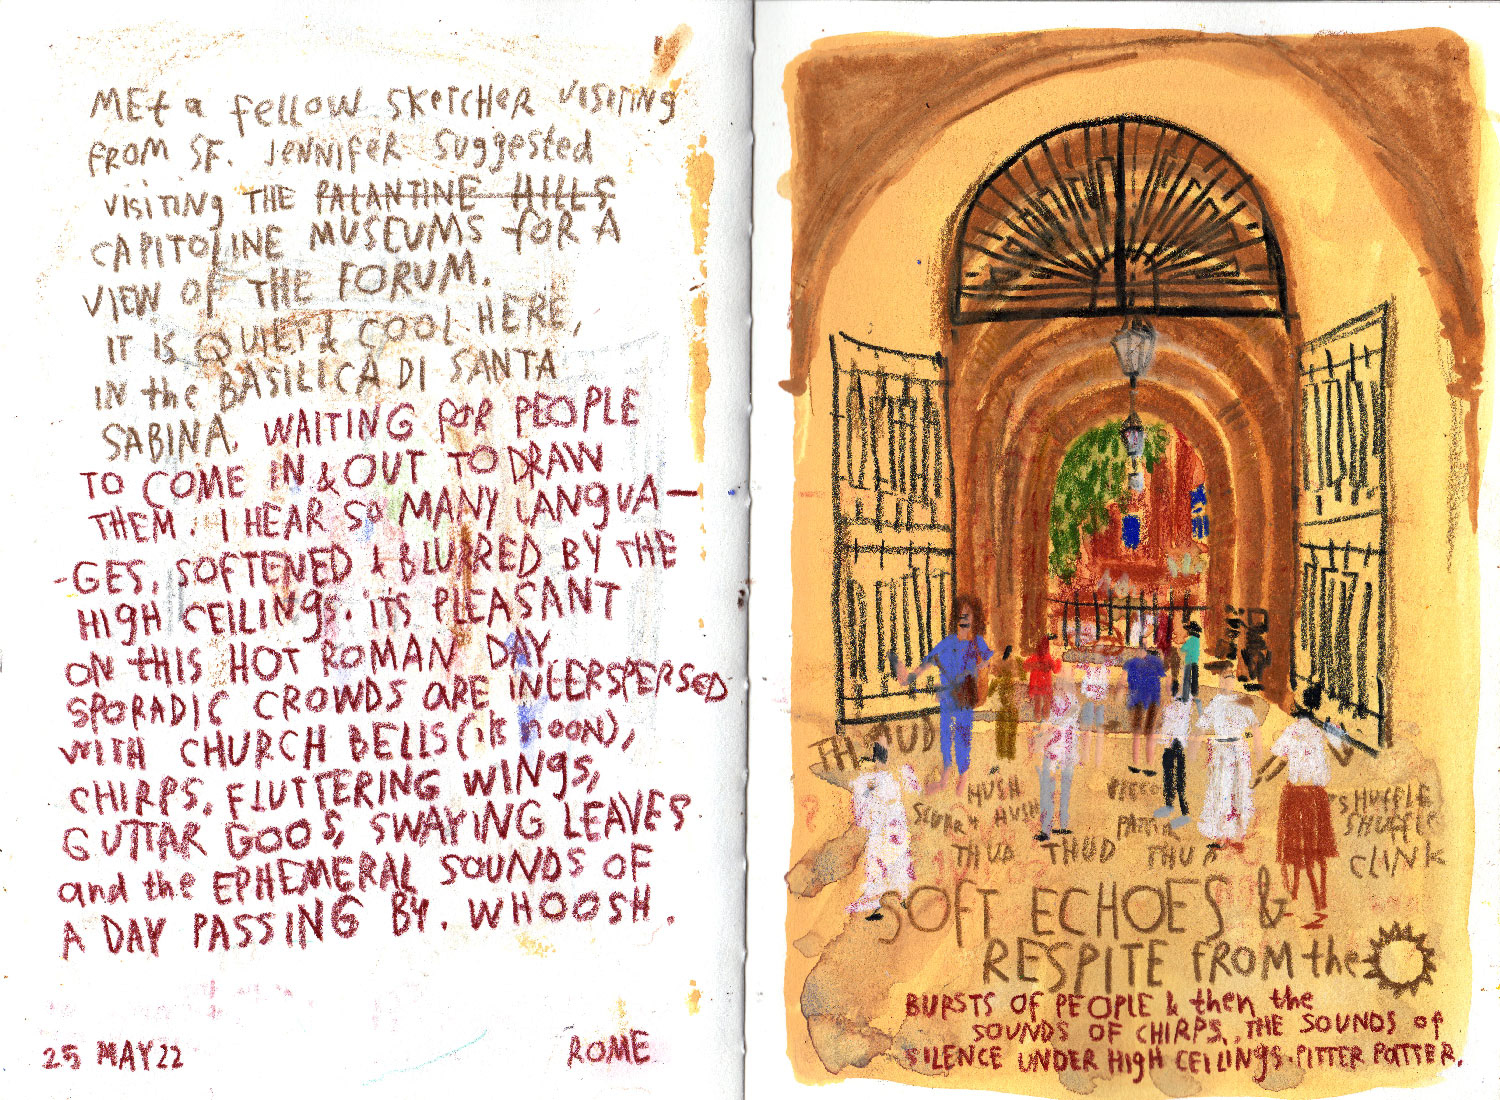 MEt a fellow SKETCHER visiting
FROM SF. JENNIFER suggested
visiting THE PALANTINE HILLS
CAPITOLINE MUSEUMS FOR A
VIEW OF THE FORUM.
IT IS QUIET & COOL HERE,
IN the BASILICA DI SANTA
SABINA. WAITING FOR PEOPLE
TO COME IN & OUT TO DRAW
THEM. I HEAR SO MANY LANGUA-
-GES, SOFTENED & BLURRED BY THE
HIGH CEILINGS. ITS PLEASANT
ON THIS HOT ROMAN DAY
SPORADIC CROWDS ARE INTERSPERSED
WITH CHURCH BELLS (its NOON),
CHIRPS, FLUTTERING WINGS,
GUTTAR GOOS, SWAYING LEAVES
and the EPHEMERAL SOUNDS OF
A DAY PASSING BY. WHOOSH.
25 MAY 22
ROME
HUSH
HUSH
SHUFFLE
SHUFFLE
PATTER
THUD THUD
CLINK
SOFT ECHOES &
RESPITE FROM the
BURSTS OF PEOPLE & then the
SOUNDS OF CHIRPS. THE SOUNDS of
SILENCE UNDER HIGH CEILINGS. PITTER PATTER.